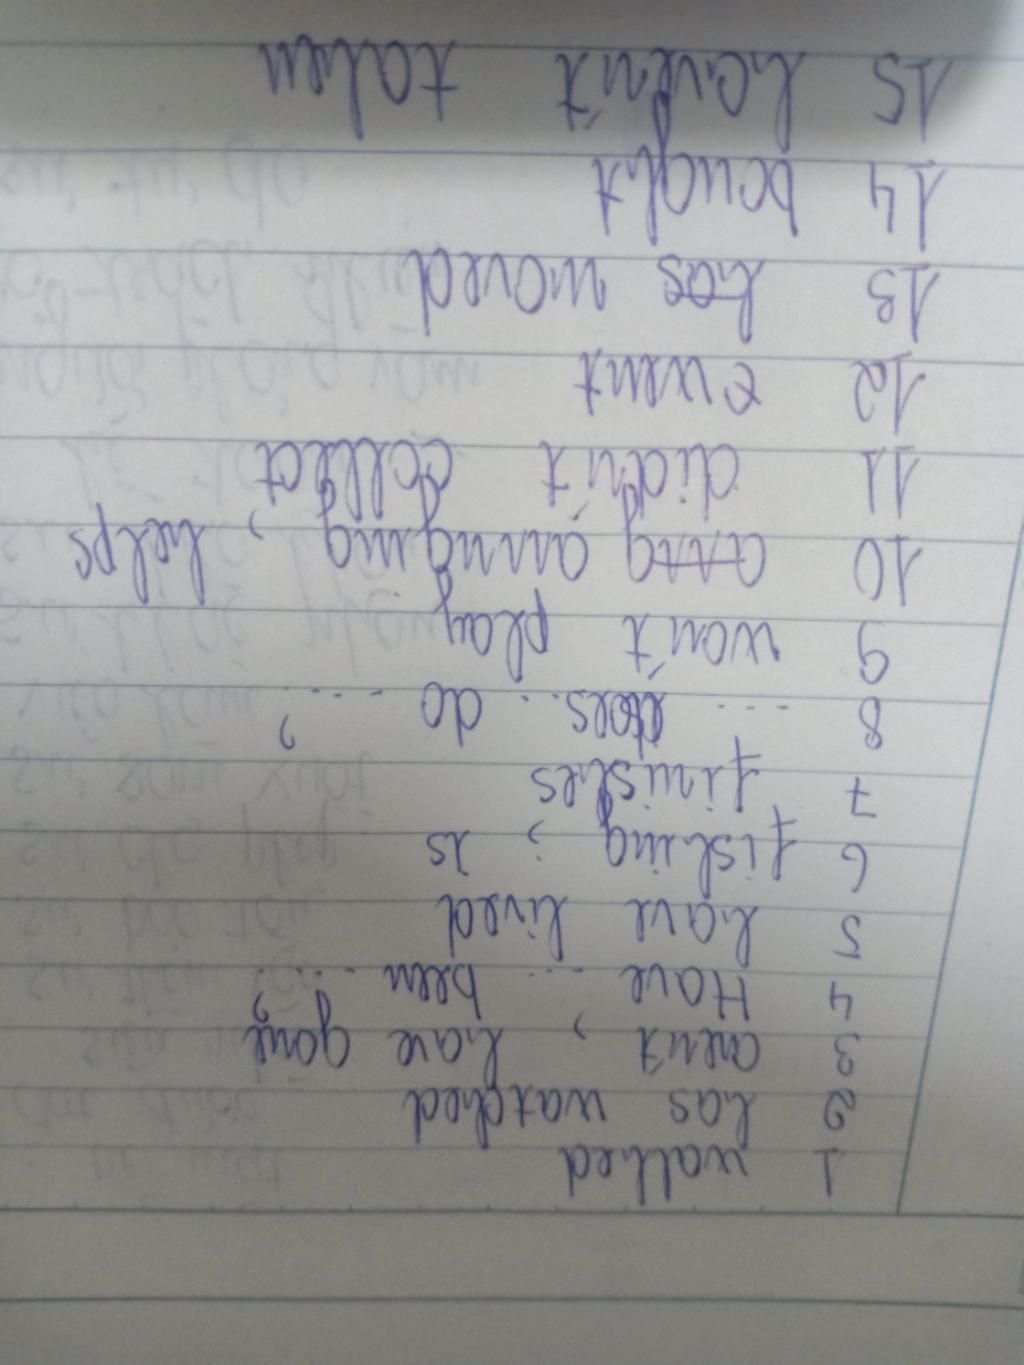 1 walked
2 has watched
3 aren't , have gone
4 Have ... been ....?
5 have lived
6 fishing ; is
7 finishes
8 .... does ... do .....?
9 won't play
10 arranging , helps
11 didn't collect
12 event
13 has moved
14 bought
15 haven't taken